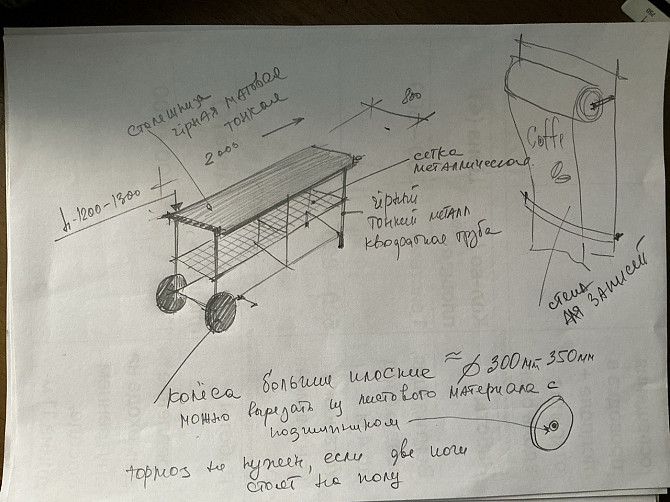 столешница
чёрная матовая
тонкая
2000
800
h-1200-1300
сетка
металлическая
чёрный
тонкий металл
квадратная труба
Coffe
стенд
для записей
колёса большие плоские ≈ ⌀ 300мм 350мм
можно вырезать из листового материала с
подшипником
тормоз не нужен, если две ноги
стоят на полу